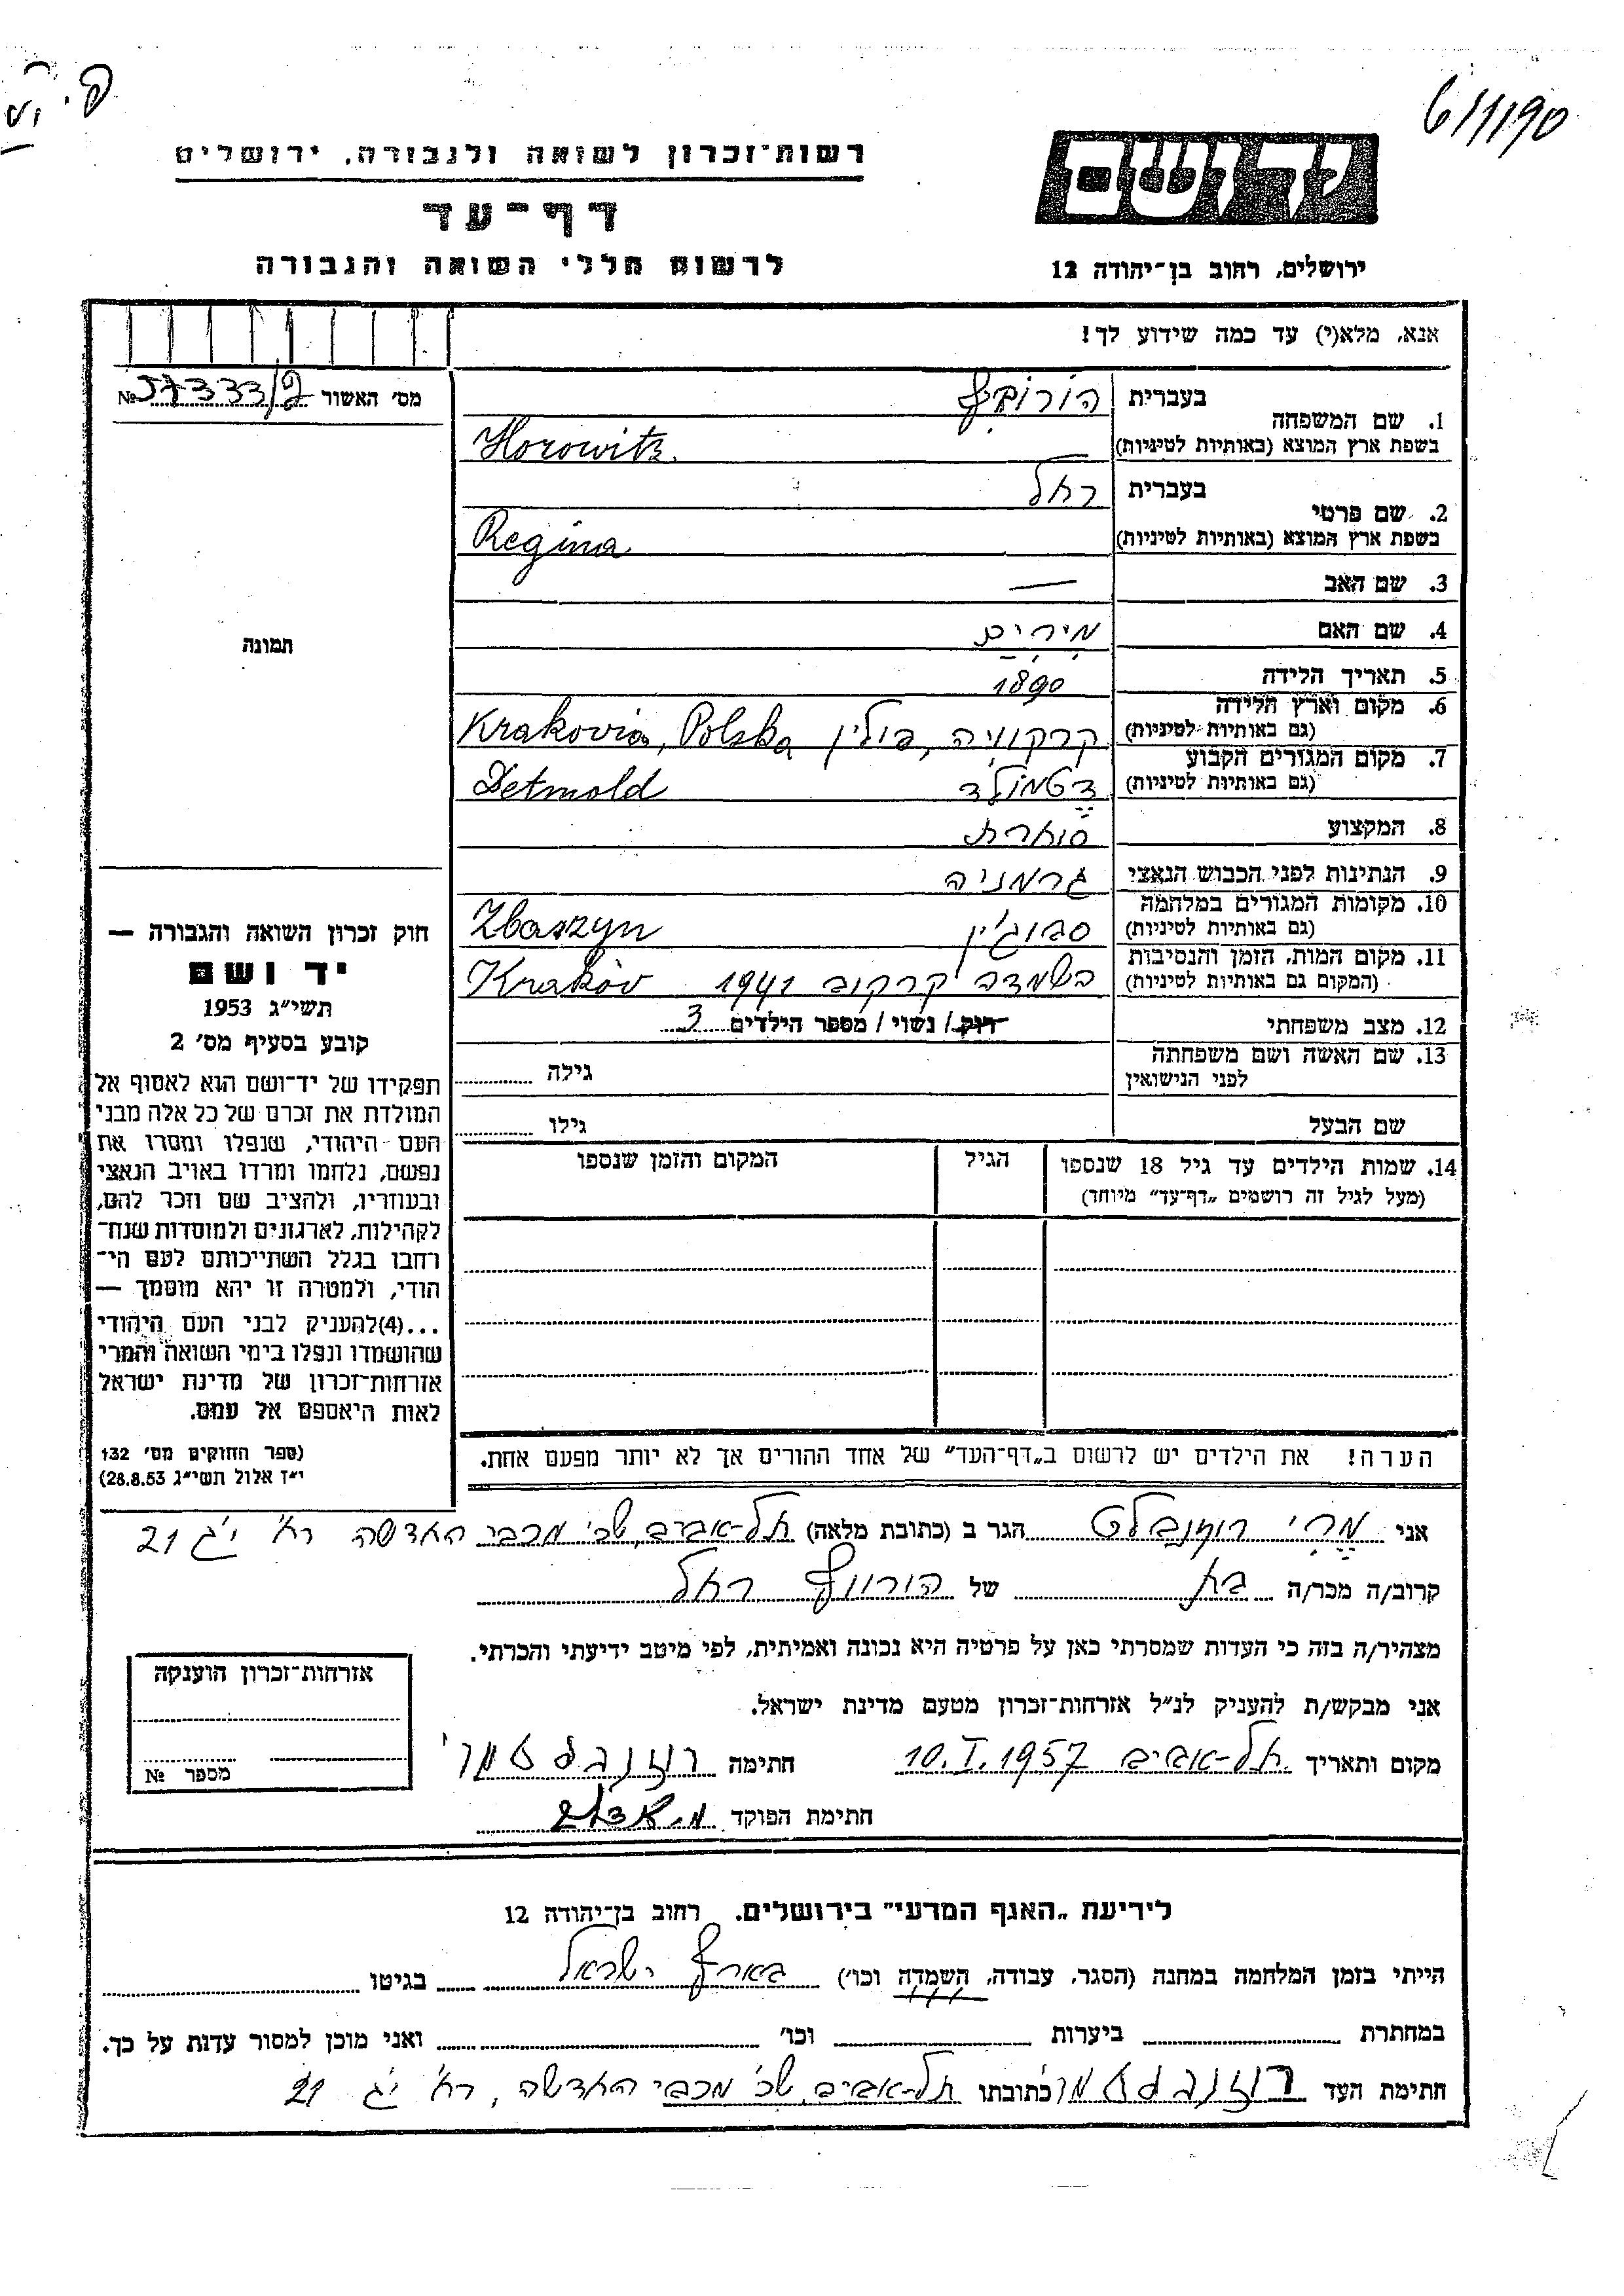 6/1/90
רשות־זכרון לשואה ולגבורה, ירושלים
יד ושם
דף־עד
לרשום חללי השואה והגבורה
ירושלים, רחוב בן־יהודה 12
אנא, מלא(י) עד כמה שידוע לך!
מס' האשור №57333/
1. שם המשפחה
בעברית הורוביץ
בשפת ארץ המוצא (באותיות לטיניות) Horowitz
2. שם פרטי
בעברית רחל
בשפת ארץ המוצא (באותיות לטיניות) Regina
3. שם האב —
4. שם האם מירים
5. תאריך הלידה 1890
6. מקום וארץ הלידה
(גם באותיות לטיניות) קרקוויה, פולין Krakovia, Polska
7. מקום המגורים הקבוע
(גם באותיות לטיניות) דטמולד Detmold
8. המקצוע סוחרת
9. הנתינות לפני הכבוש הנאצי גרמניה
10. מקומות המגורים במלחמה
(גם באותיות לטיניות) סבוג'ין Zbaszyn
11. מקום המות, הזמן והנסיבות
(המקום גם באותיות לטיניות) השמדה קרקוב 1941 Kraków
12. מצב משפחתי רוק/ נשוי/ מספר הילדים 3
13. שם האשה ושם משפחתה
לפני הנישואין גילה
שם הבעל גילו
14. שמות הילדים עד גיל 18 שנספו
(מעל לגיל זה רושמים „דף־עד" מיוחד)
הגיל
המקום והזמן שנספו
תמונה
חוק זכרון השואה והגבורה —
יד ושם
תשי"ג 1953
קובע בסעיף מס' 2
תפקידו של יד־ושם הוא לאסוף אל
המולדת את זכרם של כל אלה מבני
העם היהודי, שנפלו ומסרו את
נפשם, נלחמו ומרדו באויב הנאצי
ובעוזריו, ולהציב שם וזכר להם,
לקהילות, לארגונים ולמוסדות שנח־
רחבו בגלל השתייכותם לעם הי־
הודי, ולמטרה זו יהא מוסמך —
...(4)להעניק לבני העם היהודי
שהושמדו ונפלו בימי השואה והמרי
אזרחות־זכרון של מדינת ישראל
לאות היאספם אל עמם.
(ספר החוקים מס' 132
י"ז אלול תשי"ג 28.8.53)
הערה! את הילדים יש לרשום ב„דף־העד" של אחד ההורים אך לא יותר מפעם אחת.
אני מרי רוזנבלט הגר ב (כתובת מלאה) תל-אביב, שכ' מכבי החדשה רח' י"ג 21
קרוב/ה מכר/ה בת של הורוויץ רחל
מצהיר/ה בזה כי העדות שמסרתי כאן על פרטיה היא נכונה ואמיתית, לפי מיטב ידיעתי והכרתי.
אני מבקש/ת להעניק לנ"ל אזרחות־זכרון מטעם מדינת ישראל.
מקום ותאריך תל-אביב 10.I.1957 חתימה רוזנבלט מרי
חתימת הפוקד
אזרחות־זכרון הוענקה
מספר №
לידיעת „האגף המדעי" בירושלים. רחוב בן־יהודה 12
הייתי בזמן המלחמה במחנה (הסגר, עבודה, השמדה וכו') בארץ ישראל בגיטו
במחתרת ביערות וכו' ואני מוכן למסור עדות על כך.
חתימת העד רוזנבלט מרי כתובתו תל-אביב, שכ' מכבי החדשה, רח' י"ג 21